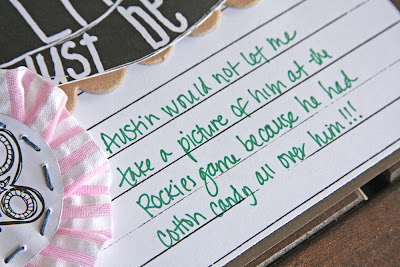 Just be
Austin would not let me
take a picture of him at the
Rockies game because he had
cotton candy all over him!!!